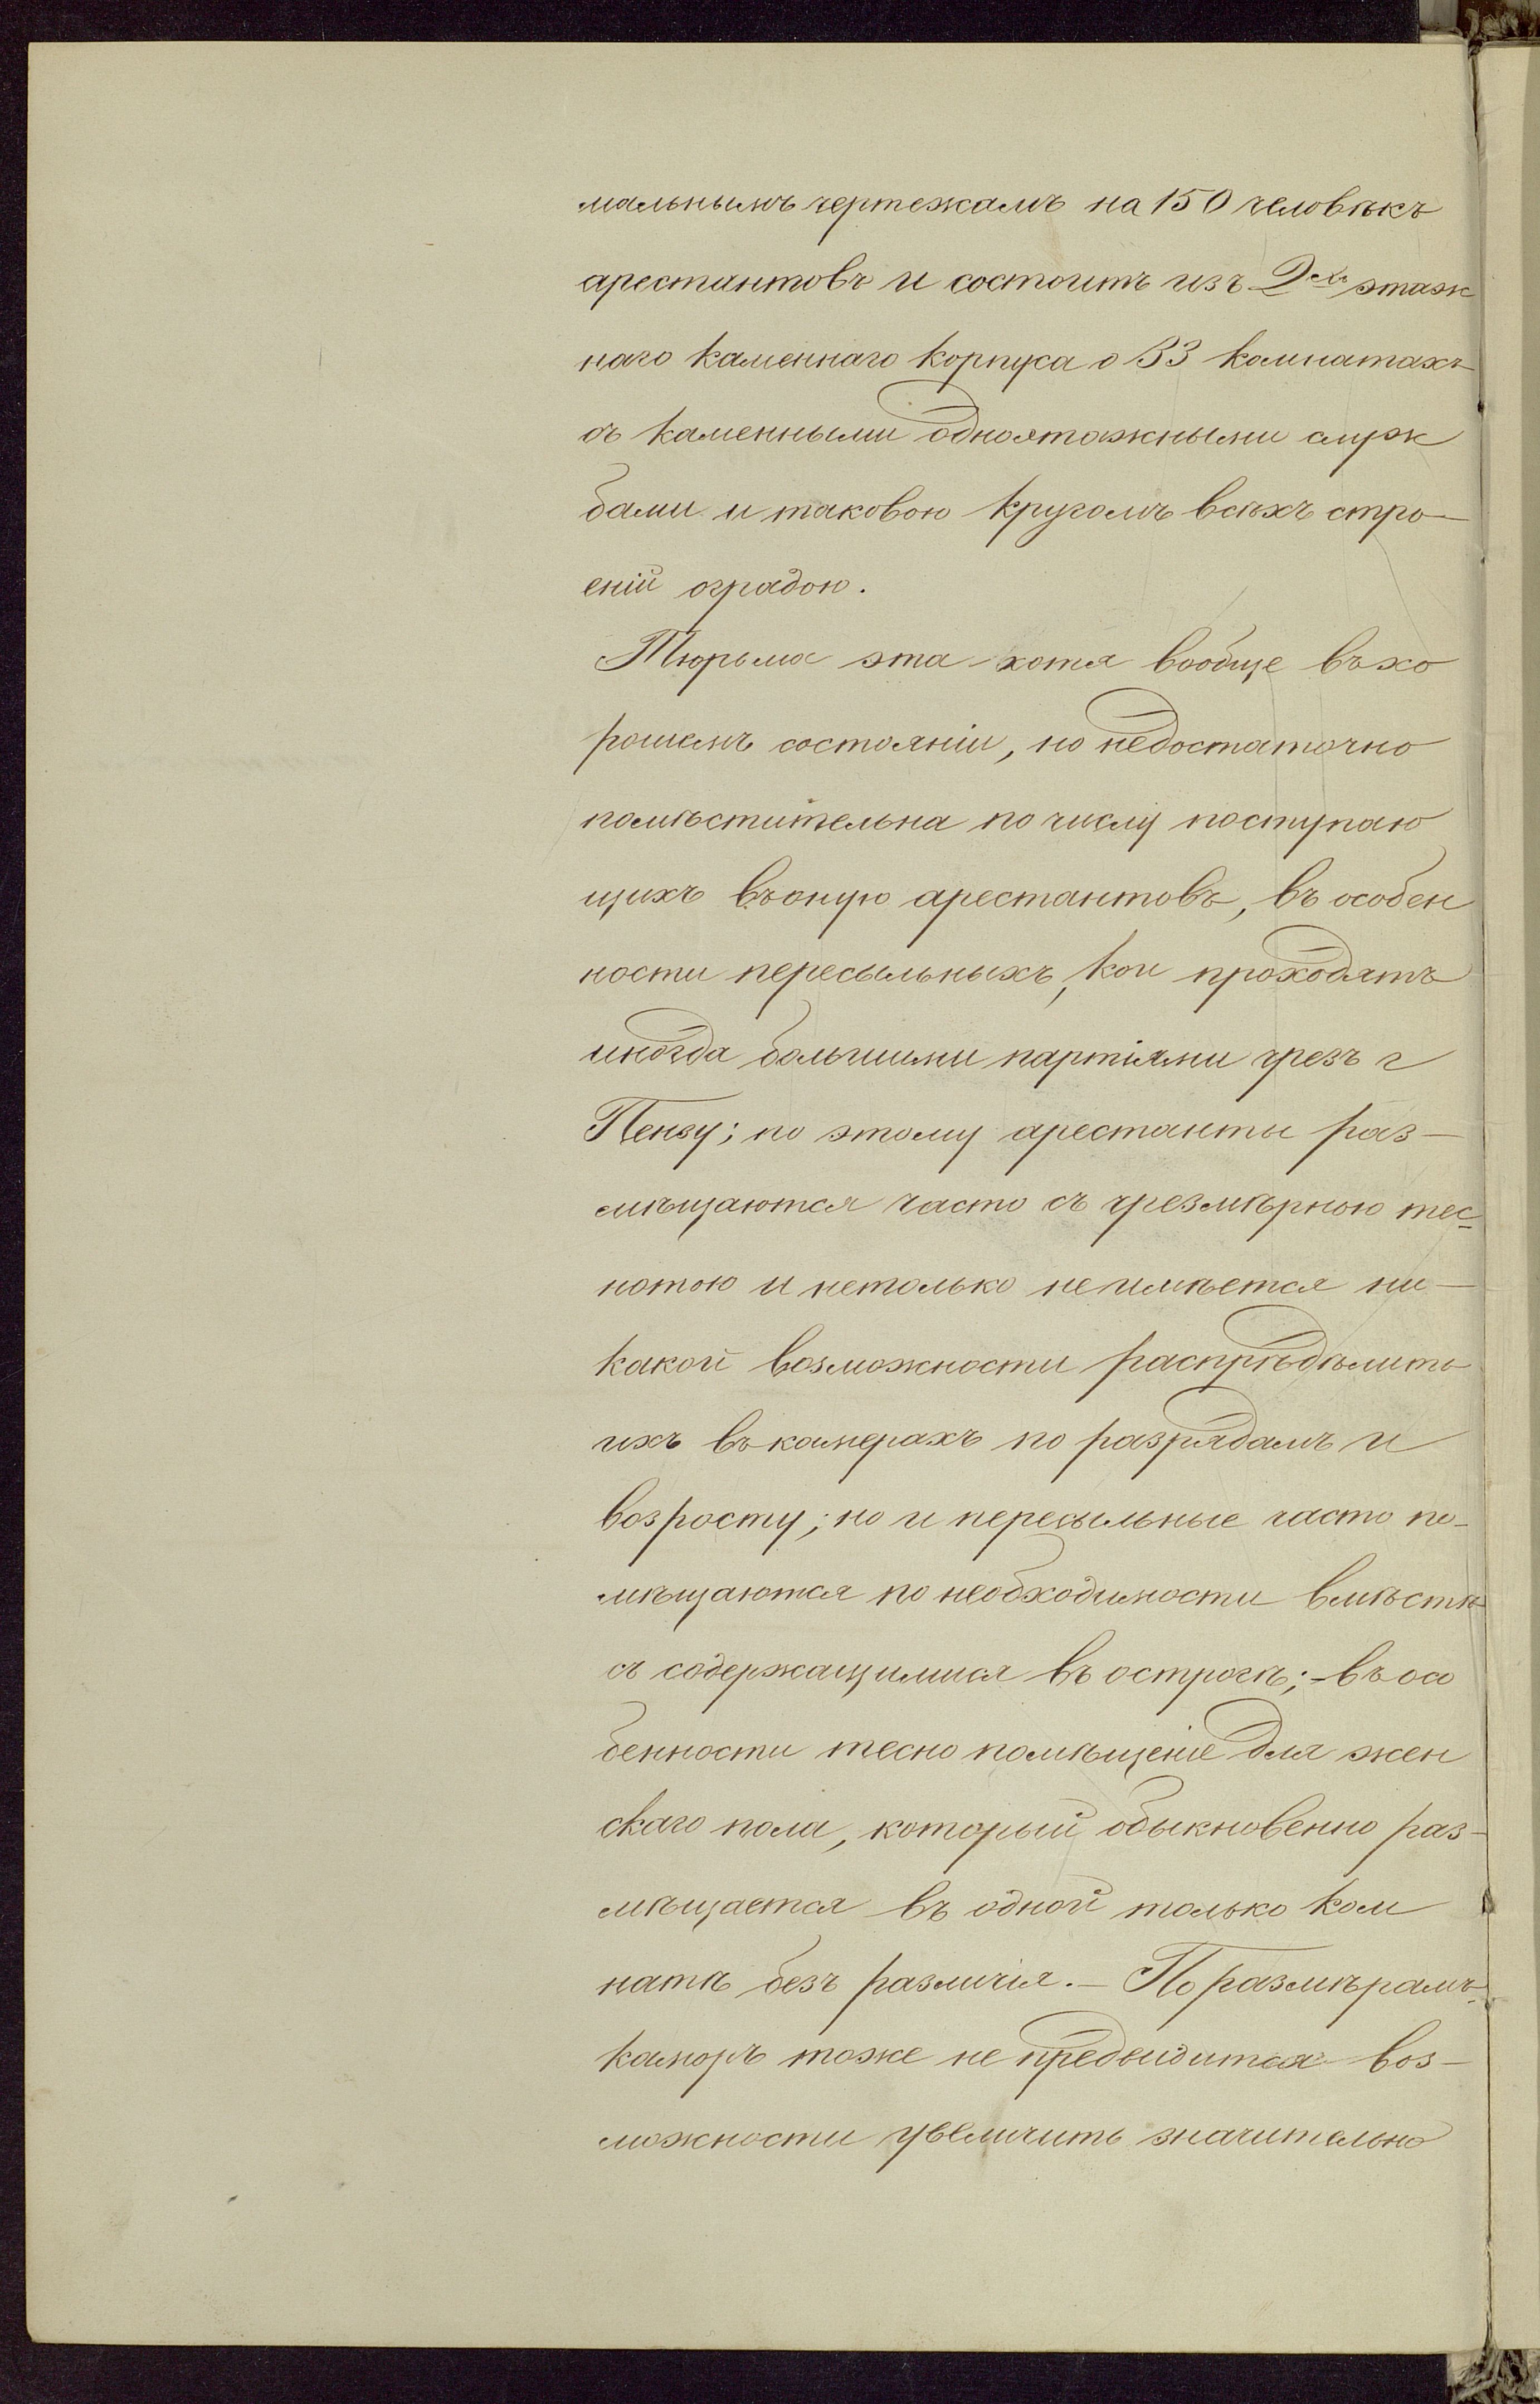 мальнымъ чертежамъ на 150 человѣкъ
арестантовъ и состоитъ изъ 2хъ этаж
наго каменнаго корпуса о 33 комнатахъ
съ каменными одноэтажными служ
бами и таковою кругомъ всѣхъ стро-
еній оградою.
Тюрьма эта хотя вообще въ хо
рошемъ состояніи, но недостаточно
помѣстительна по числу поступаю
щихъ въ оную арестантовъ, въ особен
ности пересыльныхъ, кои проходятъ
иногда большими партіями чрезъ г
Пензу; по этому арестанты раз-
мѣщаются часто съ чрезмѣрною тес-
нотою и нетолько не имѣется ни-
какой возможности распрѣдѣлить
ихъ въ камерахъ по разрядамъ и
возросту; но и пересыльные часто по-
мѣщаются по необходимости вмѣстѣ
съ содержащимися въ острогѣ; - въ осо
бенности тесно помѣщеніе для жен
скаго пола, который обыкновенно раз-
мѣщается въ одной только ком
натѣ безъ различія. - По размѣрамъ
каморъ тоже не предвидится воз-
можности увеличить значительно